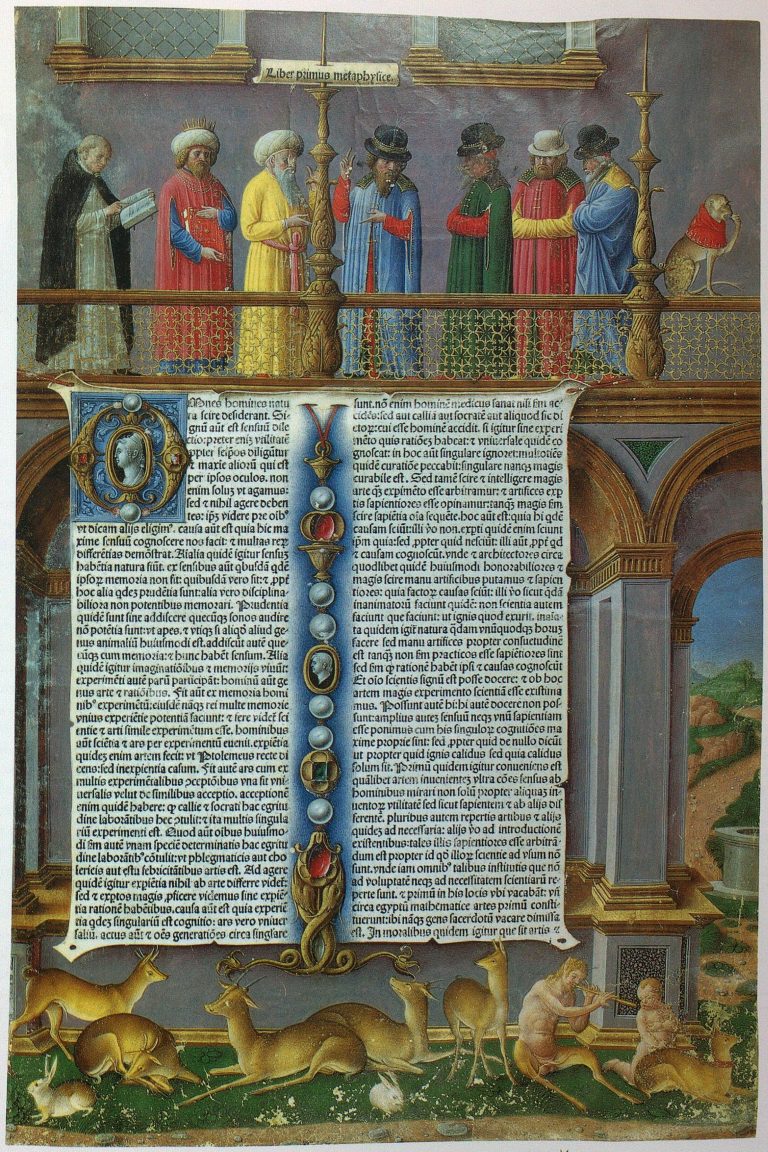 Liber primus metaphysice.
Omnes homines natu
ra scire desiderant. Si-
gnū aūt est sensuū dile
ctio: preter eniz vtilitatē
propter seipos diligūtur
⁊ maxie aliorū qui est
per ipsos oculos. non
enim soluz vt agamus:
sed ⁊ nihil agere deben
tes: ipz videre pre oīb⁹
vt dicam alijs eligim⁹. causa aūt est quia hic ma
xime sensuū cognoscere nos facit: ⁊ multas reꝝ
differētias demōstrat. Aīalia quidē igitur sensuz
habētia natura fiūt. ex sensibus aūt qbusdā qdē
ipsoꝝ memoria non fit: quibusdā vero fit: ⁊ ppt
hoc alia qdez prudētia sunt: alia vero disciplina-
biliora non potentibus memorari. Prudentia
quidē sunt sine addiscere quecūqz sonos audire
nō potētia sunt: vt apes. ⁊ vtiqz si aliqd aliud ge-
nus animaliū huiusmodi est. addiscūt autē que-
cūqz cum memoria: ⁊ hunc habēt sensum. Alia
quidē igitur imaginatiōibus ⁊ memorijs viuūt
experimēti autē parū participāt: hominū aūt ge
nus arte ⁊ ratiōibus. Fit aūt ex memoria homi
nib⁹ experimētū: eiusdē nāqz rei multe memorie
vnius experiētie potentiā faciunt: ⁊ fere videt sci
entie ⁊ arti simile experimētum esse. hominibus
aūt sciētia ⁊ ars per experimentū euenit. expiētia
quidez enim artem fecit: vt Ptolemeus recte di
cens: sed inexpientia casum. Fit autē ars cum ex
multis experimētalibus ꝯceptiōibus vna fit vni
uersalis velut de similibus acceptio. acceptionē
enim quidē habere: ꝙ callie ⁊ socrati hac egritu
dine laborātibus hec ꝯtulit: ⁊ ita multis singula
riū experimenti est. Quod aūt oībus huiusmo-
di fm autē vnam speciē determinatis hac egritu
dine laborātib⁹ cōtulit: vt phlegmaticis aut cho
lericis aut estu febricitātibus artis est. Ad agere
quidē igitur expiētia nihil ab arte differre videt:
sed ⁊ exptos magis pficere videmus sine expiē-
tia rationē habētibus. causa aūt est quia experiē
tia qdez singulariū est cognitio: ars vero vniuer
saliū. actus aūt ⁊ oēs generatiōes circa singlare
sunt. nō enim hominē medicus sanat nisi fm ac
cidēs: sed aut calliā aut socratē aut aliquod sic di
ctoꝝ: cui esse hominē accidit. si igitur sine experi
mēto quis ratiōez habeat: ⁊ vniuersale quidē co
gnoscat: in hoc aūt singulare ignoret: multotiēs
quidē curatiōe peccabit: singulare nanqz magis
curabile est. Sed tamē scire ⁊ intelligere magis
arte qz expimēto esse arbitramur: ⁊ artifices exp
tis sapientiores esse opinamur: tanqz magis fm
scire sapiētia oīa sequēte. hoc aūt est: quia hi qdē
causam sciūt: illi vo non. expti quidē enim sciunt
ipm quia: sed ppter quid nesciūt: illi aūt ppt qd
⁊ causam cognoscūt. vnde ⁊ architectores circa
quodlibet quidē huiusmodi honorabiliores ⁊
magis scire manu artificibus putamus ⁊ sapien
tiores: quia factoꝝ causas sciūt: illi vo sicut qdā
inanimatorū faciunt quidē: non scientia autem
faciunt que faciunt: ut ignis quod exurit. inaīa-
ta quidem igit natura qdam vnūquodqz horuz
facere sed manu artifices propter consuetudinē
est tanqz non fm practicos esse sapiētiores sint
sed fm ꝙ rationē habēt ipsi ⁊ causas cognoscūt
Et oīo scientis signū est posse docere: ⁊ ob hoc
artem magis experimento scientiā esse existima
mus. Possunt autē hi: hi autē docere non pos-
sunt: amplius autez sensuū neqz vnū sapientiam
esse ponimus cum his singuloꝝ cognitiōes ma
xime proprie sint: sed ppter quid de nullo dicūt
ut propter quid ignis calidus sed quia calidus
solum sit. Primū quidem igitur conueniens est
quālibet artem inuenientez vltra cōes sensus ab
hominibus mirari non solū propter aliquaz in-
uentoꝝ vtilitatē sed sicut sapientem ⁊ ab alijs dif
ferentē. pluribus autem repertis artibus ⁊ alijs
quidez ad necessaria: alijs vo ad introductionē
existentibus: tales illis sapientiores esse arbitrā-
dum est propter id qd illoꝝ scientie ad vsum nō
sunt. vnde iam omnib⁹ talibus institutis que nō
ad voluptatē neqz ad necessitatem scientiarū re
perte sunt. ⁊ primū in his locis vbi vacabāt: vn
circa egyptū mathematice artes primū consti
tuerunt: ibi nāqz gens sacerdotū vacare dimissa
est. In moralibus quidem igitur que sit artis ⁊